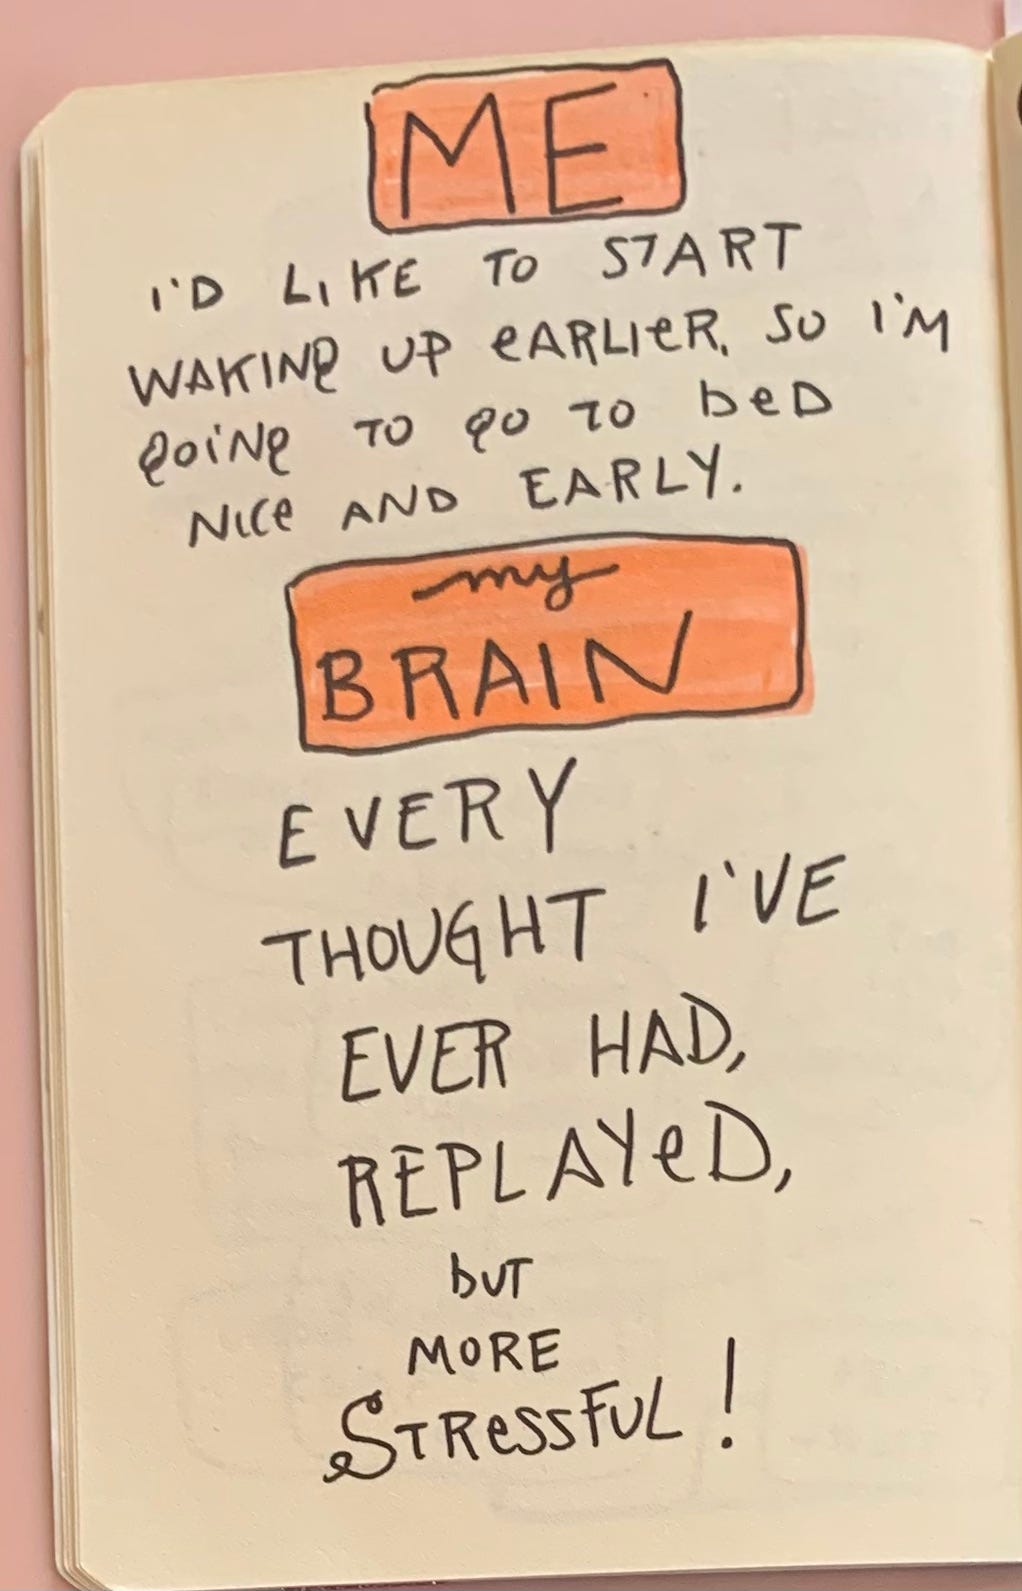 ME
I'D LIKE TO START
WAKING UP eARLIeR, SO I'M
GOiNG TO GO TO beD
NICe AND EARLY.
my
BRAIN
EVERY
THOUGHT I'VE
EVER HAD,
REPLAYeD,
bUT
MORE
STReSSFUL!